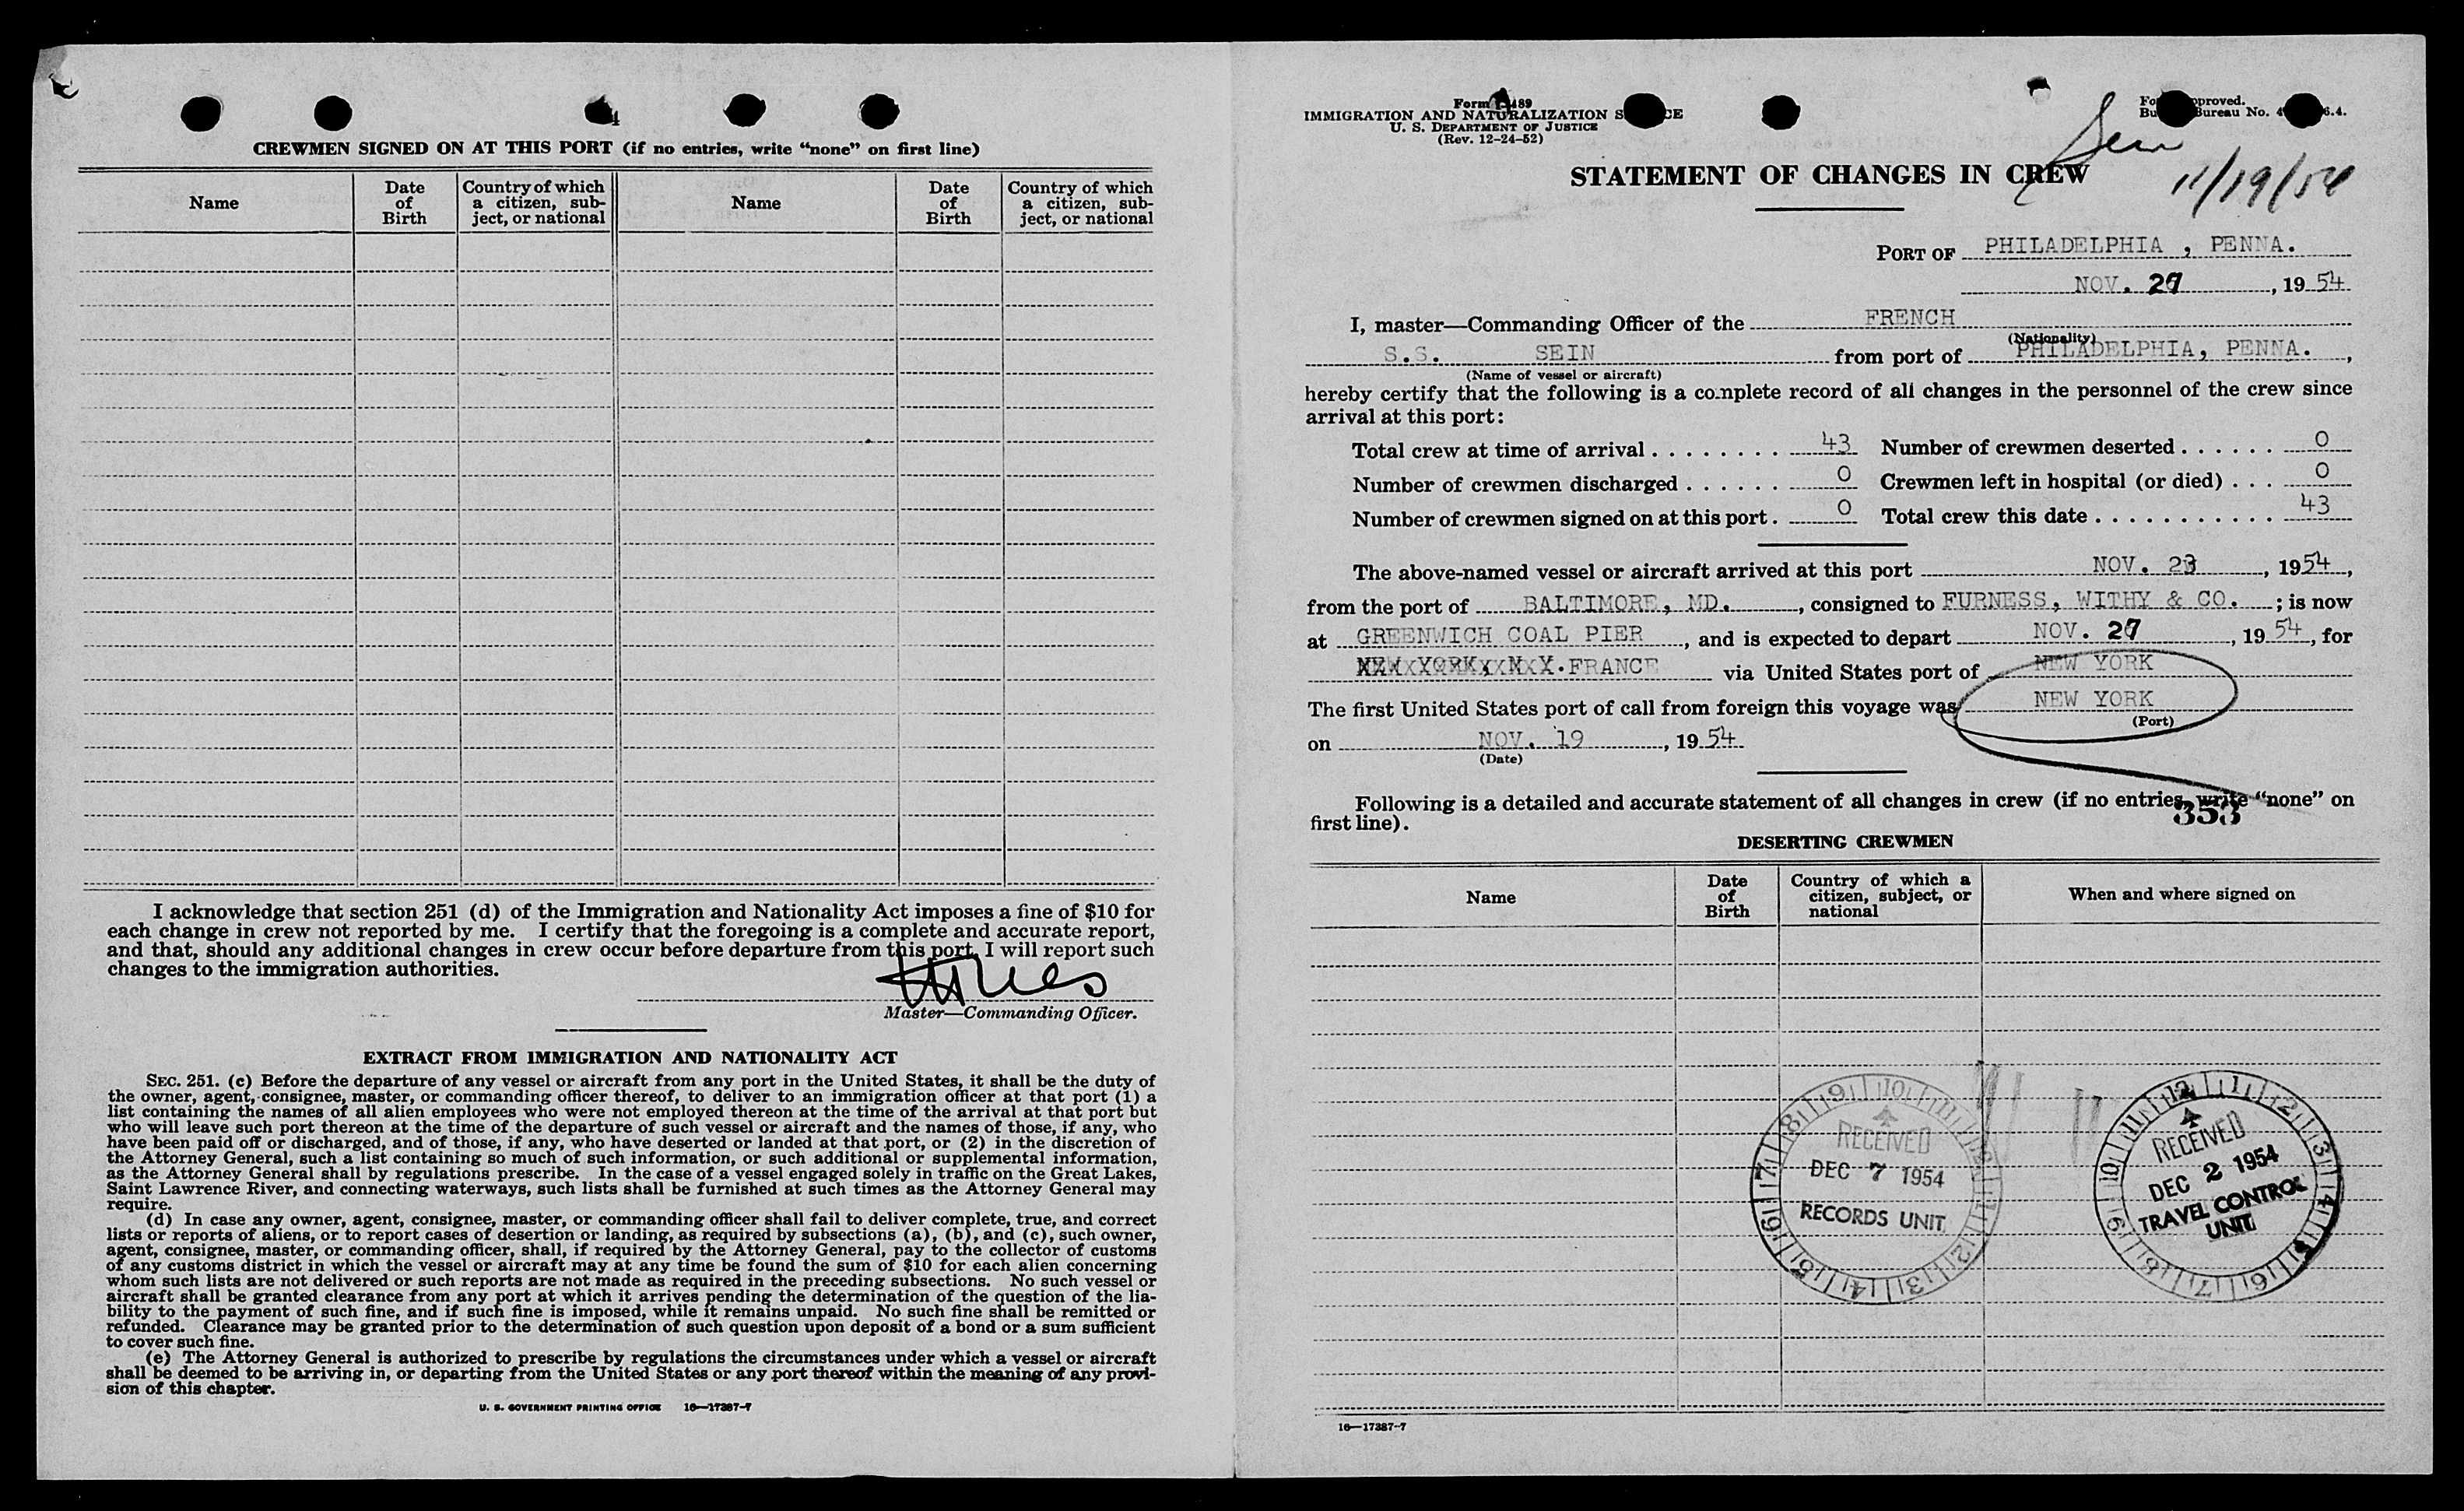 CREWMEN SIGNED ON AT THIS PORT (if no entries, write “none” on first line)
Name
Date of Birth
Country of which a citizen, subject, or national
Name
Date of Birth
Country of which a citizen, subject, or national
I acknowledge that section 251 (d) of the Immigration and Nationality Act imposes a fine of $10 for
each change in crew not reported by me. I certify that the foregoing is a complete and accurate report,
and that, should any additional changes in crew occur before departure from this port, I will report such
changes to the immigration authorities.
Master—Commanding Officer.
EXTRACT FROM IMMIGRATION AND NATIONALITY ACT
SEC. 251. (c) Before the departure of any vessel or aircraft from any port in the United States, it shall be the duty of
the owner, agent, consignee, master, or commanding officer thereof, to deliver to an immigration officer at that port (1) a
list containing the names of all alien employees who were not employed thereon at the time of the arrival at that port but
who will leave such port thereon at the time of the departure of such vessel or aircraft and the names of those, if any, who
have been paid off or discharged, and of those, if any, who have deserted or landed at that port, or (2) in the discretion of
the Attorney General, such a list containing so much of such information, or such additional or supplemental information,
as the Attorney General shall by regulations prescribe. In the case of a vessel engaged solely in traffic on the Great Lakes,
Saint Lawrence River, and connecting waterways, such lists shall be furnished at such times as the Attorney General may
require.
(d) In case any owner, agent, consignee, master, or commanding officer shall fail to deliver complete, true, and correct
lists or reports of aliens, or to report cases of desertion or landing, as required by subsections (a), (b), and (c), such owner,
agent, consignee, master, or commanding officer, shall, if required by the Attorney General, pay to the collector of customs
of any customs district in which the vessel or aircraft may at any time be found the sum of $10 for each alien concerning
whom such lists are not delivered or such reports are not made as required in the preceding subsections. No such vessel or
aircraft shall be granted clearance from any port at which it arrives pending the determination of the question of the lia-
bility to the payment of such fine, and if such fine is imposed, while it remains unpaid. No such fine shall be remitted or
refunded. Clearance may be granted prior to the determination of such question upon deposit of a bond or a sum sufficient
to cover such fine.
(e) The Attorney General is authorized to prescribe by regulations the circumstances under which a vessel or aircraft
shall be deemed to be arriving in, or departing from the United States or any port thereof within the meaning of any provi-
sion of this chapter.
U. S. GOVERNMENT PRINTING OFFICE 16—17387-7
Form 489
IMMIGRATION AND NATURALIZATION
U. S. DEPARTMENT OF JUSTICE
(Rev. 12-24-52)
Bureau No.
Sein
11/19/54
STATEMENT OF CHANGES IN CREW
PORT OF PHILADELPHIA , PENNA.
NOV. 27, 19 54
I, master—Commanding Officer of the FRENCH
(Nationality)
S.S. SEIN from port of PHILADELPHIA, PENNA.,
(Name of vessel or aircraft)
hereby certify that the following is a complete record of all changes in the personnel of the crew since
arrival at this port:
Total crew at time of arrival . . . . . . . . 43 Number of crewmen deserted . . . . . . 0
Number of crewmen discharged . . . . . . 0 Crewmen left in hospital (or died) . . . 0
Number of crewmen signed on at this port . 0 Total crew this date . . . . . . . . . . . 43
The above-named vessel or aircraft arrived at this port NOV. 23, 1954,
from the port of BALTIMORE, MD., consigned to FURNESS, WITHY & CO. ; is now
at GREENWICH COAL PIER, and is expected to depart NOV. 27, 19 54, for
FRANCE via United States port of NEW YORK
The first United States port of call from foreign this voyage was NEW YORK
(Port)
on NOV. 19, 19 54
(Date)
Following is a detailed and accurate statement of all changes in crew (if no entries, write “none” on
first line).
353
DESERTING CREWMEN
Name
Date of Birth
Country of which a citizen, subject, or national
When and where signed on
RECEIVED
DEC 7 1954
RECORDS UNIT
RECEIVED
DEC 2 1954
TRAVEL CONTROL
UNIT
16—17387-7